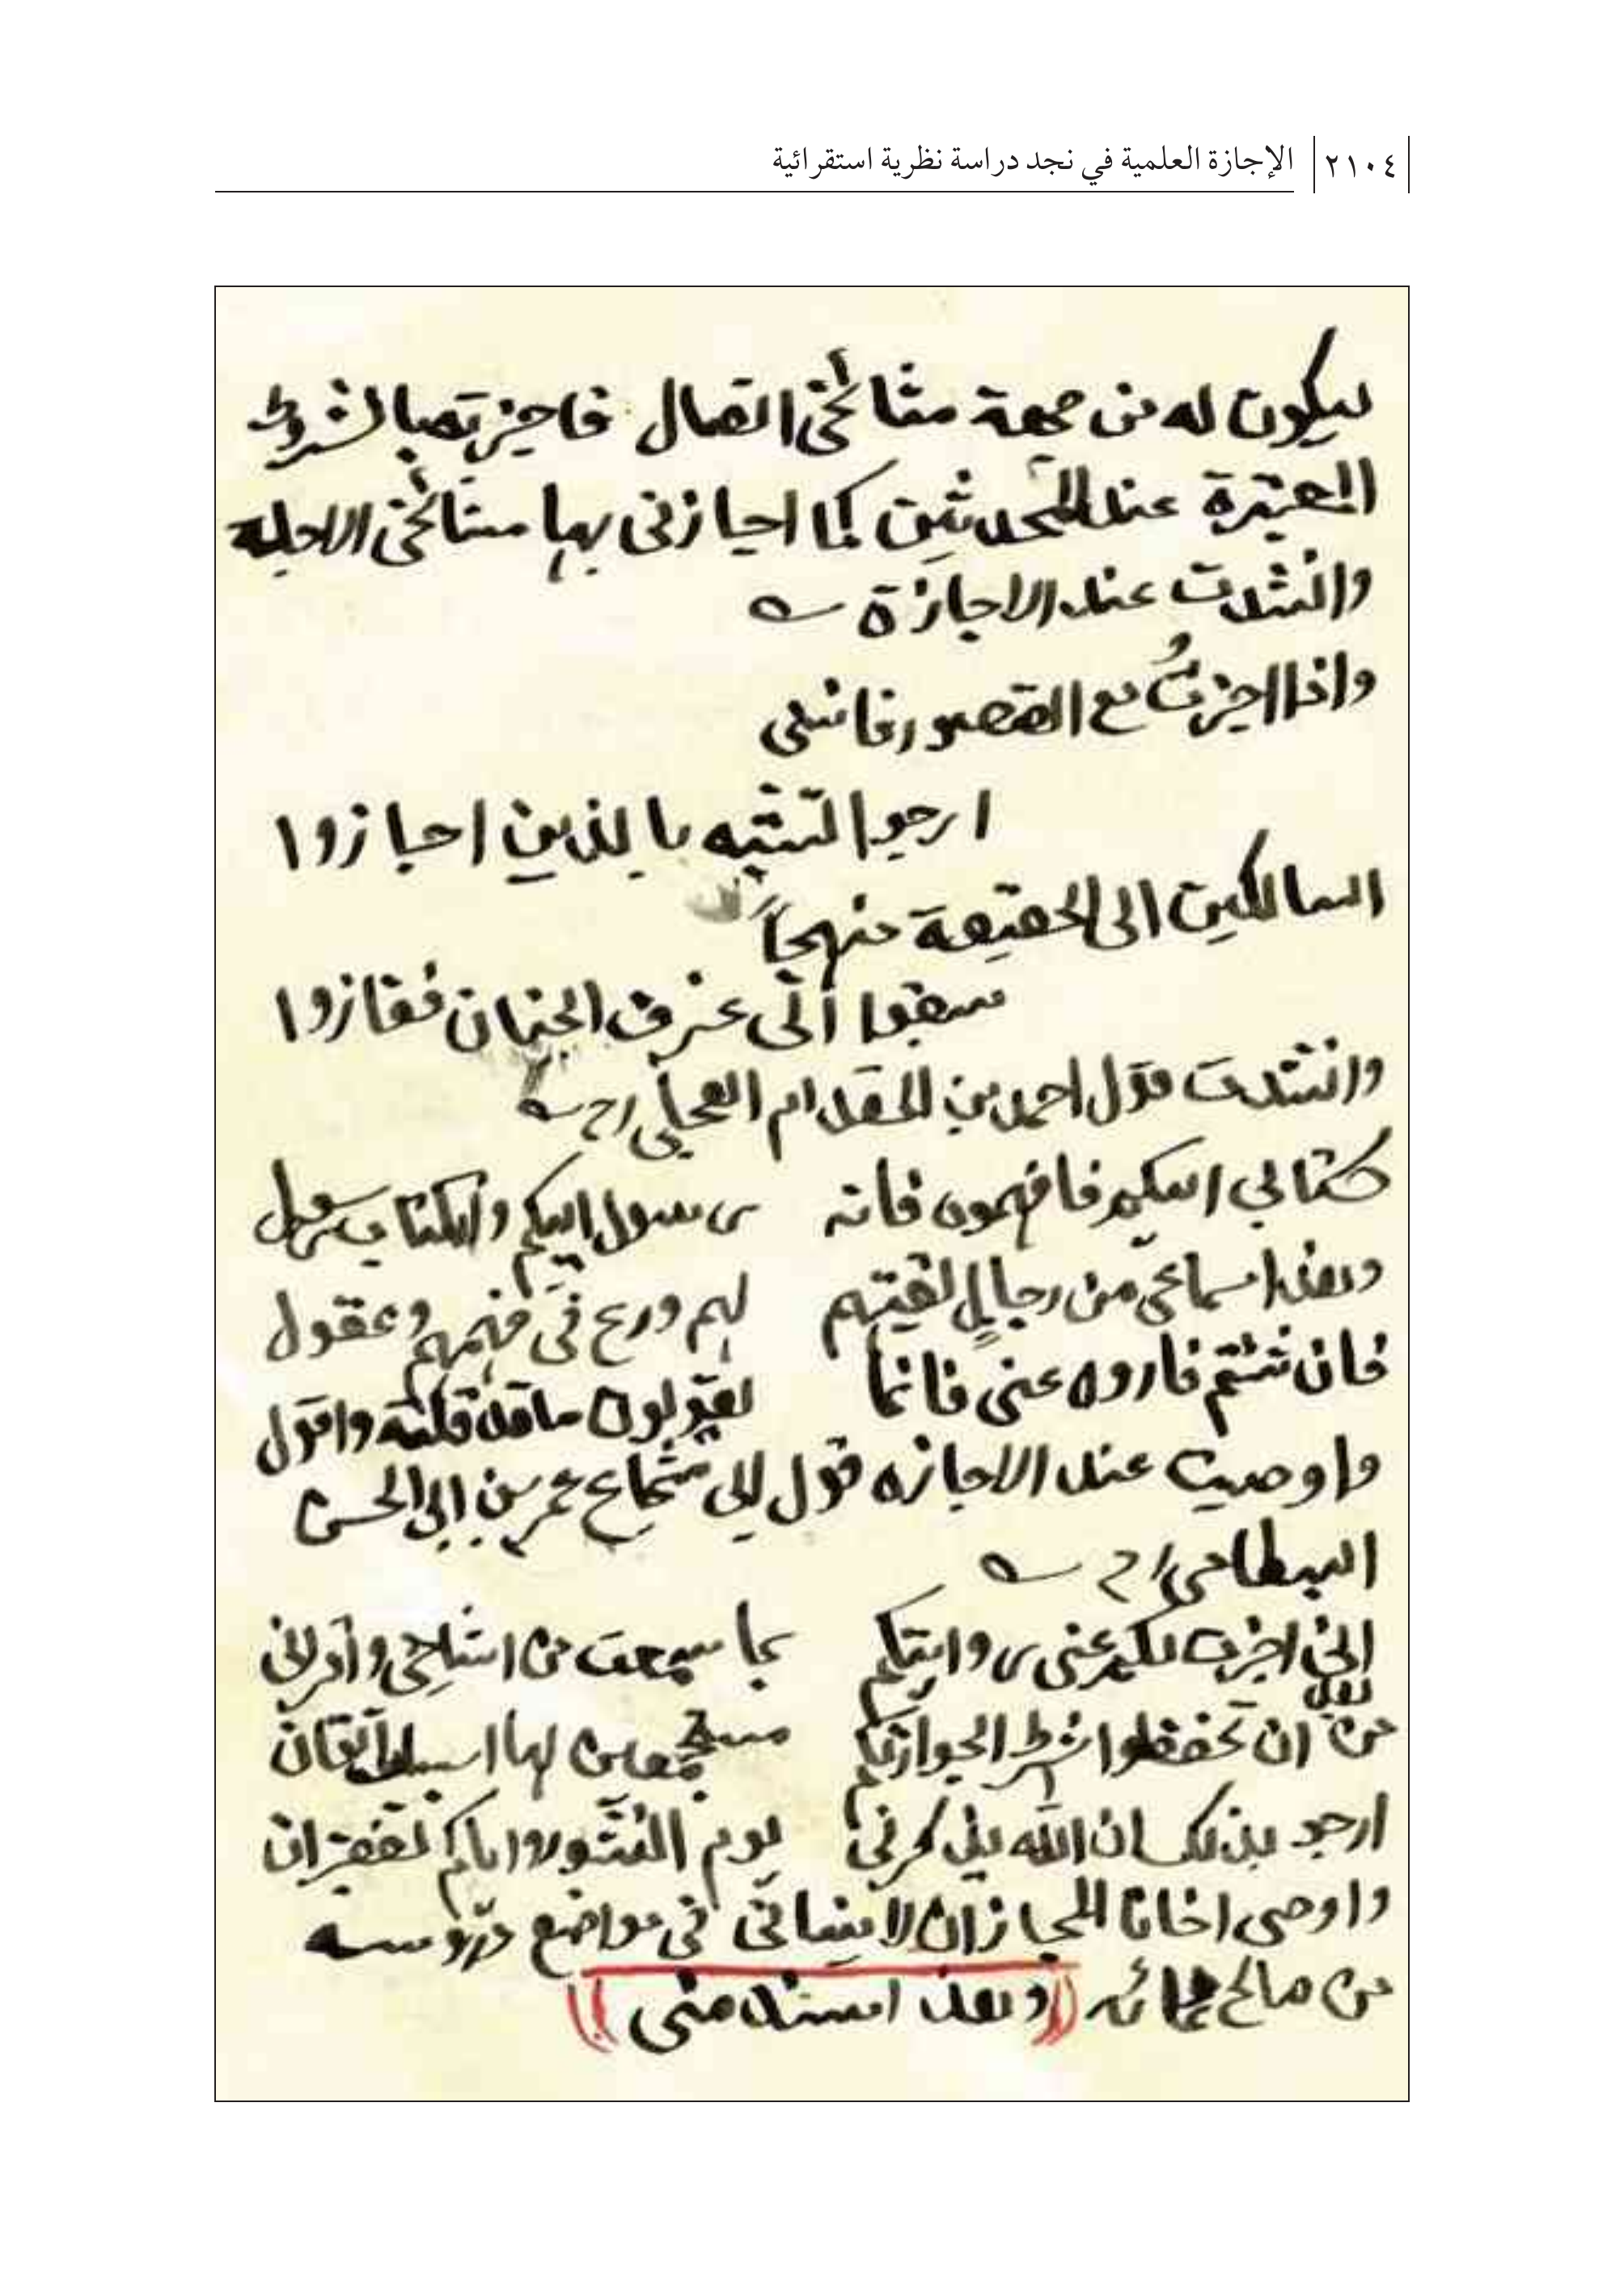 ٢١٠٤ الإجازة العلمية في نجد دراسة نظرية استقرائية
ليكون له من جهة مشائخي اتصال فاجيزته بالشروط
المعتبرة عند المحدثين كما اجازني بها مشائخي الاجله
وانشدت عند الاجازة
واذا اجزتُ مع القصور فانني
ارجوا التشبه بالذين اجازوا
السالكين الى الحقيقة منهجاً
سبقوا الى غرف الجنان ففازوا
وانشدت قول احمد بن المقدام العجلي رح
كتابي اليكم فافهموه فانه رسول اليكم والكتاب رسول
وهذا سماعي من رجالٍ لقيتهم لهم ورع في فهمهم وعقول
فان شئتم فارووه عني فانما تقولون ما قد قلته واقول
واوصيت عند الاجازه قول ابي شجاع عمر بن ابي الحسن
البسطامي رح
اني اجزت لكم عني روايتكم بما سمعت من اشياخي واقراني
من بعد ان تحفظوا شرط الجواز لكم مستجمعين لها اسباب اتقان
ارجو بذلك ان الله يذكرني يوم النشور واياكم بغفران
واوصى اخانا المجاز ان لا ينساني في مواضع دروسه
من صالح دعائه ((وهذا سند مني))